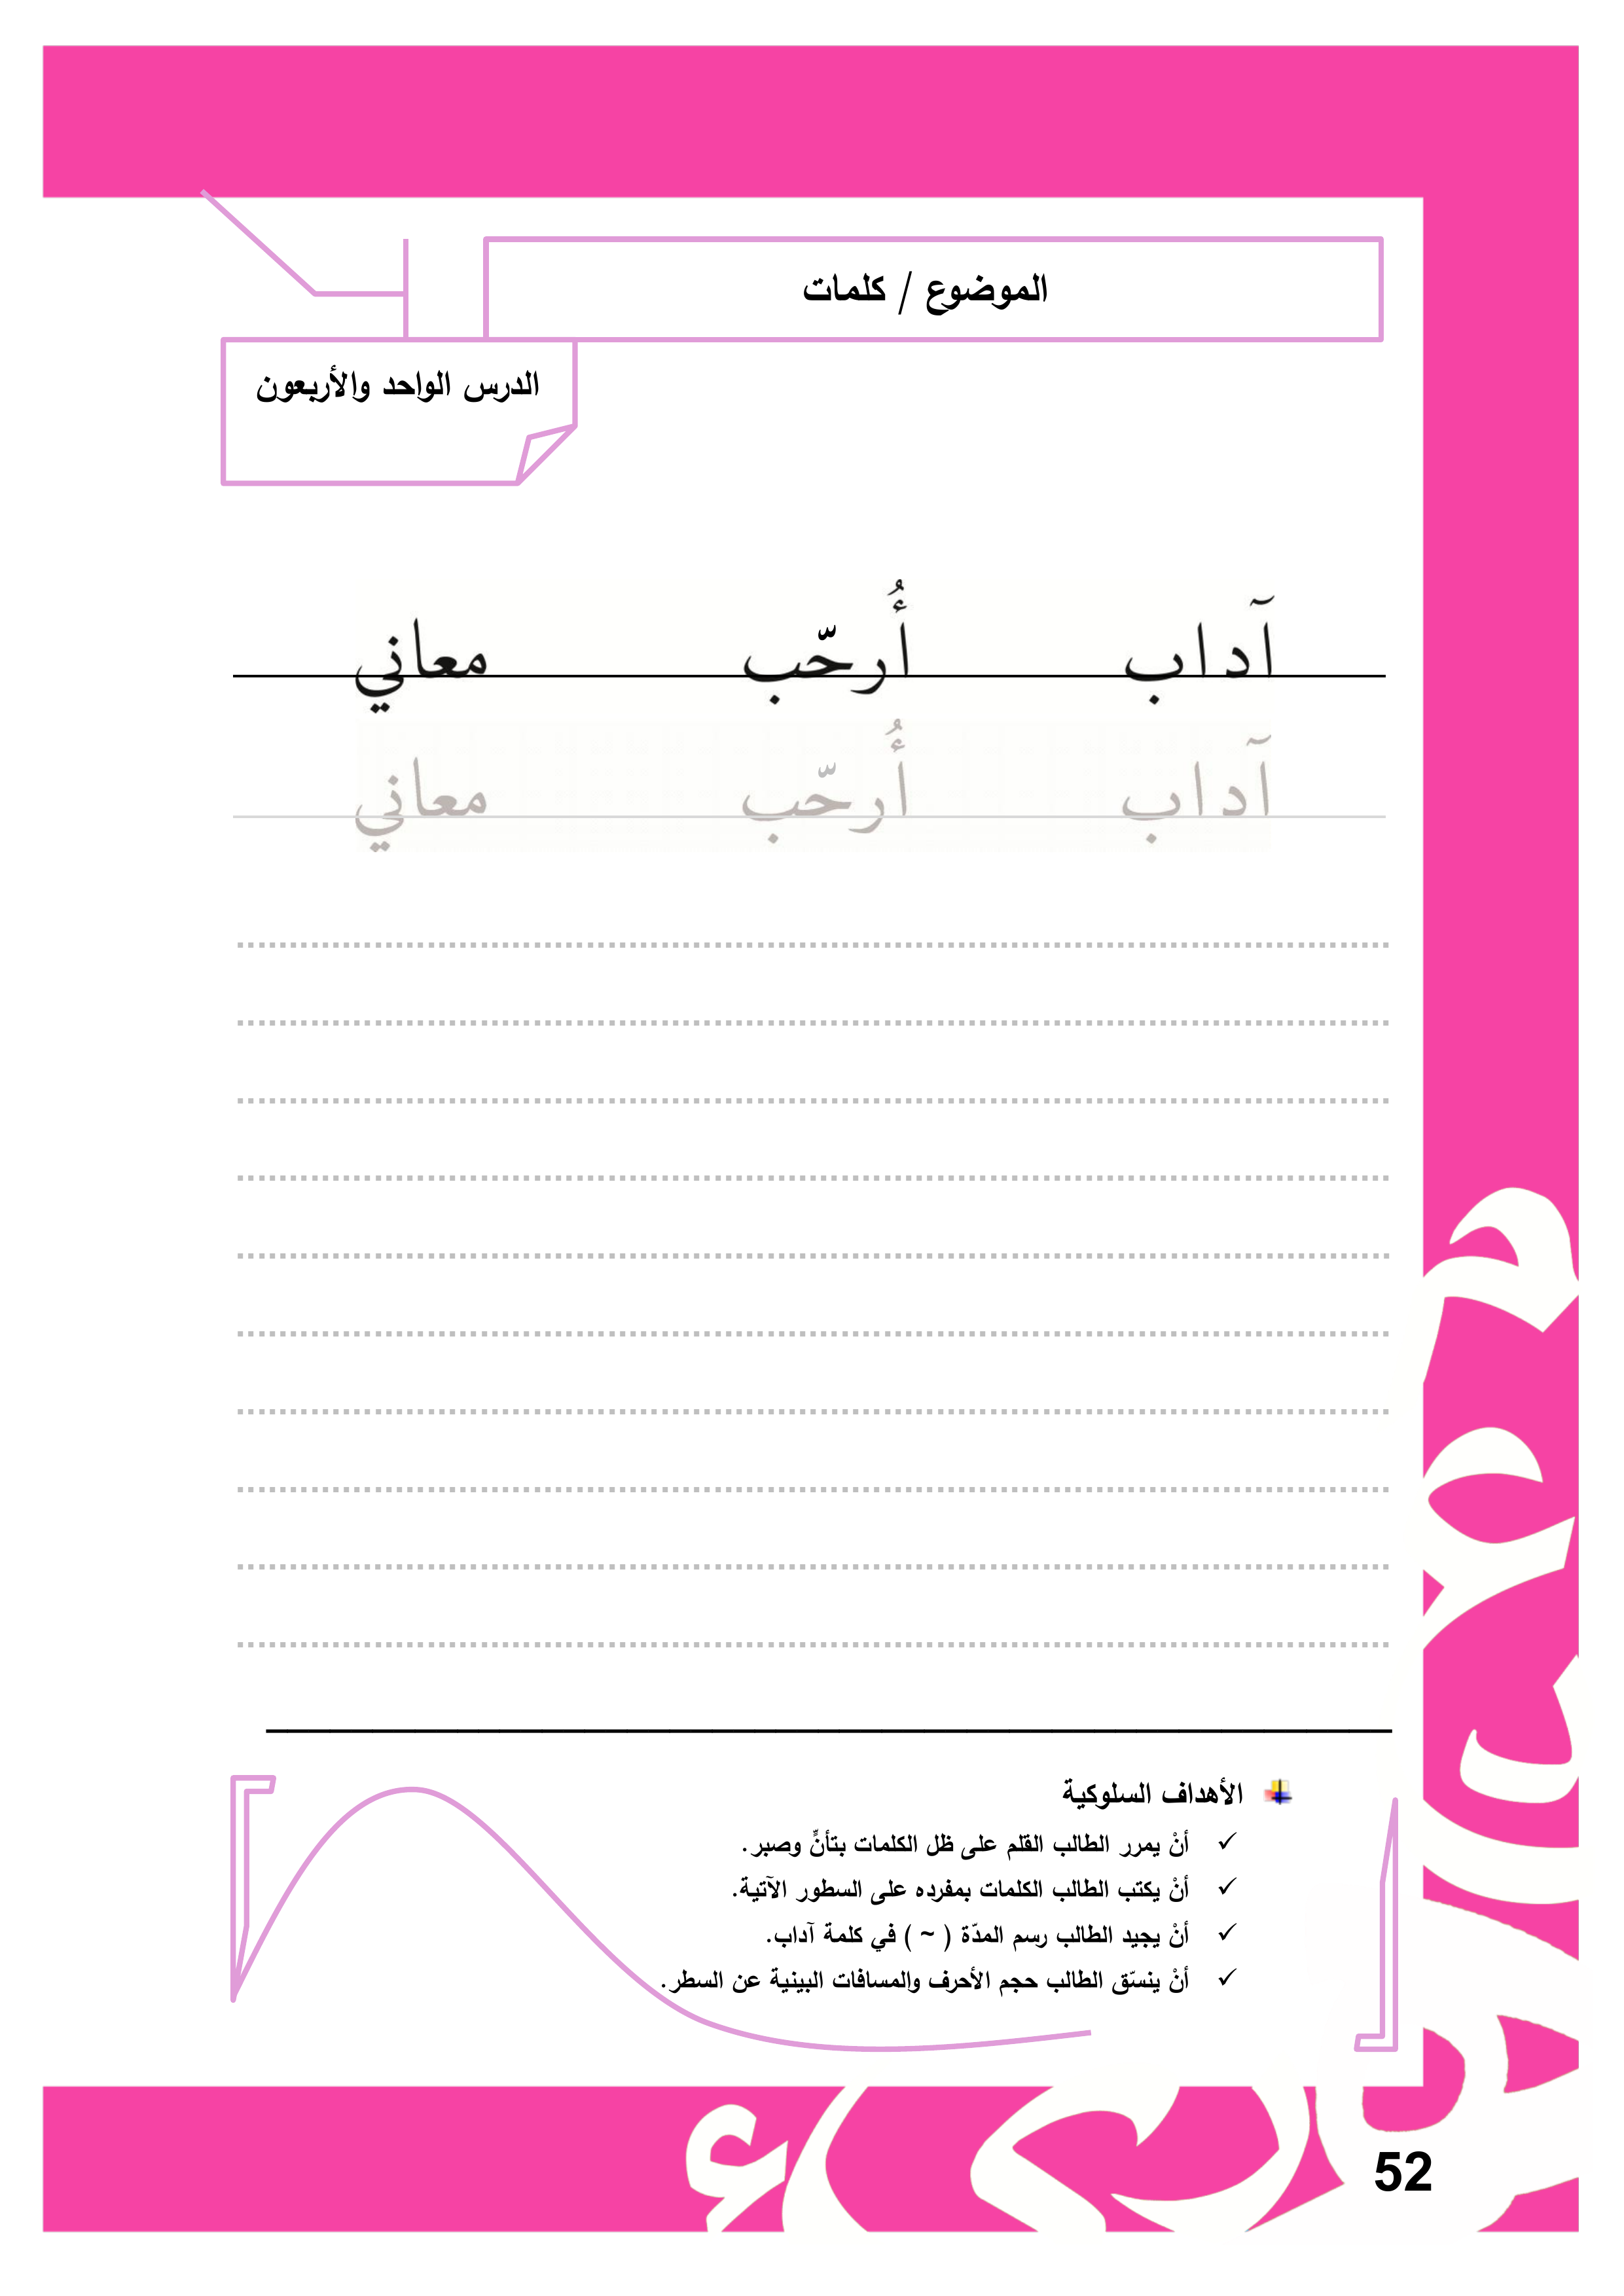 الموضوع / كلمات
الدرس الواحد والأربعون
آداب أُرحّب معاني
آداب أُرحّب معاني
الأهداف السلوكية
✓ أنْ يمرر الطالب القلم على ظل الكلمات بتأنٍّ وصبر.
✓ أنْ يكتب الطالب الكلمات بمفرده على السطور الآتية.
✓ أنْ يجيد الطالب رسم المدّة ( ~ ) في كلمة آداب.
✓ أنْ ينسّق الطالب حجم الأحرف والمسافات البينية عن السطر.
52